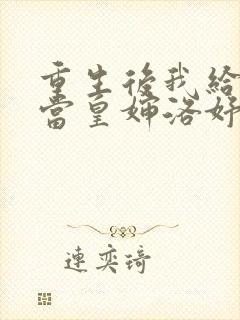 重生後我給
當皇嬸洛妤
連奕琦